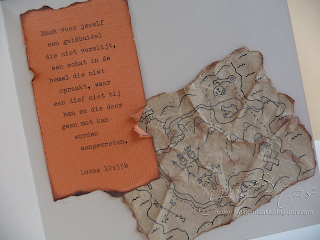 Maak voor jezelf
een geldbuidel
die niet verslijt,
een schat in de
hemel die niet
opraakt, waar
een dief niet bij
kan en die door
geen mot kan
worden
aangevreten.
Lucas 12:33b